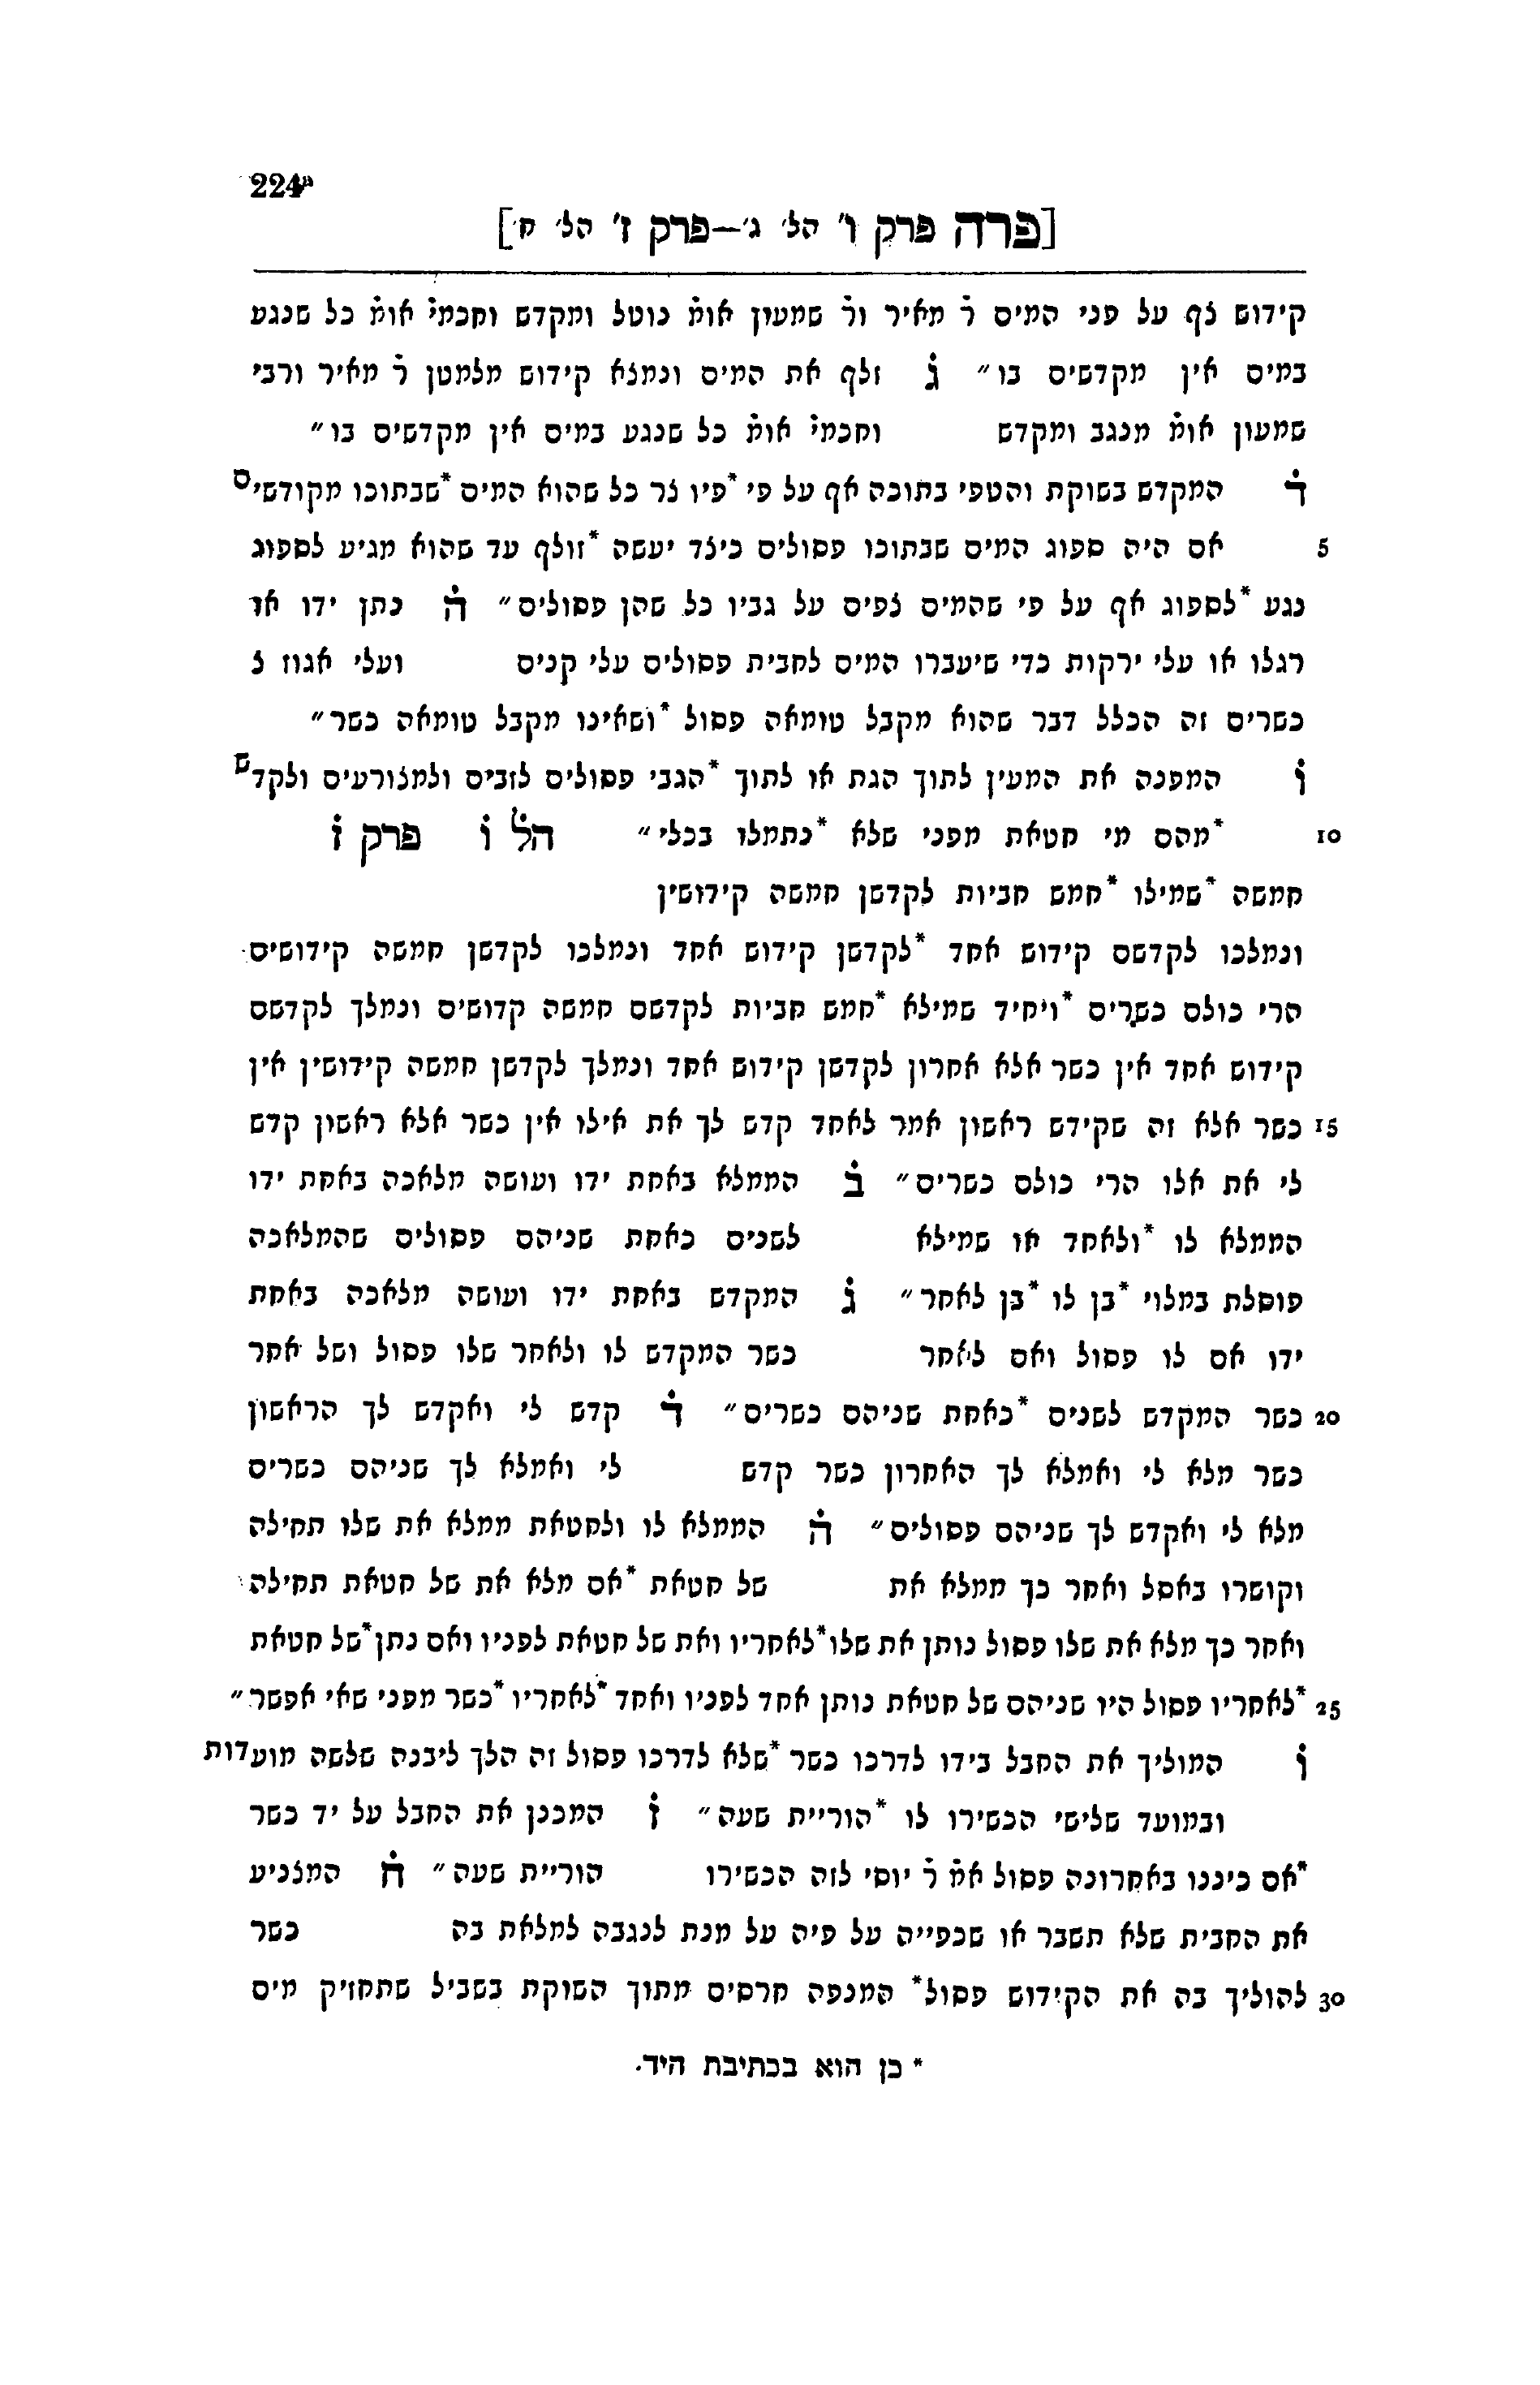 224ᵃ
[פרה פרק ו' הל' ג'—פרק ז' הל' ח']
קידוש צף על פני המים ר̇ מאיר ור̇ שמעון אומ̇ נוטל ומקדש וחכמי̇ אומ̇ כל שנגע
במים אין מקדשים בו״ ג̇ זלף את המים ונמצא קידוש מלמטן ר̇ מאיר ורבי
שמעון אומ̇ מנגב ומקדש וחכמי̇ אומ̇ כל שנגע במים אין מקדשים בו״
ד̇ המקדש בשוקת והטפי בתוכה אף על פי *פיו צר כל שהוא המים *שבתוכו מקודשים
5 אם היה ספוג המים שבתוכו פסולים כיצד יעשה *זולף עד שהוא מגיע לספוג
נגע *לספוג אף על פי שהמים צפים על גביו כל שהן פסולים״ ה̇ נתן ידו או
רגלו או עלי ירקות כדי שיעברו המים לחבית פסולים עלי קנים ועלי אגוז צ
כשרים זה הכלל דבר שהוא מקבל טומאה פסול *ושאינו מקבל טומאה כשר״
ו̇ המפנה את המעין לתוך הגת או לתוך *הגבי פסולים לזבים ולמצורעים ולקדש
10 *מהם מי חטאת מפני שלא *נתמלו בכלי״ הל̇ ו̇ פרק ז̇
חמשה *שמילו *חמש חביות לקדשן חמשה קידושין
ונמלכו לקדשם קידוש אחד *לקדשן קידוש אחד ונמלכו לקדשן חמשה קידושים
הרי כולם כשרים *ויחיד שמילא *חמש חביות לקדשם חמשה קדושים ונמלך לקדשם
קידוש אחד אין כשר אלא אחרון לקדשן קידוש אחד ונמלך לקדשן חמשה קידושין אין
15 כשר אלא זה שקידש ראשון אמר לאחד קדש לך את אילו אין כשר אלא ראשון קדש
לי את אלו הרי כולם כשרים״ ב̇ הממלא באחת ידו ועושה מלאכה באחת ידו
הממלא לו *ולאחד או שמילא לשנים כאחת שניהם פסולים שהמלאכה
פוסלת במלוי *בן לו *בן לאחר״ ג̇ המקדש באחת ידו ועושה מלאכה באחת
ידו אם לו פסול ואם לאחר כשר המקדש לו ולאחר שלו פסול ושל אחר
20 כשר המקדש לשנים *כאחת שניהם כשרים״ ד̇ קדש לי ואקדש לך הראשון
כשר מלא לי ואמלא לך האחרון כשר קדש לי ואמלא לך שניהם כשרים
מלא לי ואקדש לך שניהם פסולים״ ה̇ הממלא לו ולחטאת ממלא את שלו תחילה
וקושרו באסל ואחר כך ממלא את של חטאת *אם מלא את של חטאת תחילה
ואחר כך מלא את שלו פסול נותן את שלו *לאחריו ואת של חטאת לפניו ואם נתן *של חטאת
25 *לאחריו פסול היו שניהם של חטאת נותן אחד לפניו ואחד *לאחריו *כשר מפני שאי אפשר״
ו̇ המוליך את החבל בידו לדרכו כשר *שלא לדרכו פסול זה הלך ליבנה שלשה מועדות
ובמועד שלישי הכשירו לו *הוריית שעה״ ז̇ המכנן את החבל על יד כשר
*אם כיננו באחרונה פסול אמ̇ ר̇ יוסי לזה הכשירו הוריית שעה״ ח̇ המצניע
את החבית שלא תשבר או שכפייה על פיה על מנת לנגבה למלאת בה כשר
30 להוליך בה את הקידוש פסול* המנפה חרסים מתוך השוקת בשביל שתחזיק מים
* כן הוא בכתיבת היד.